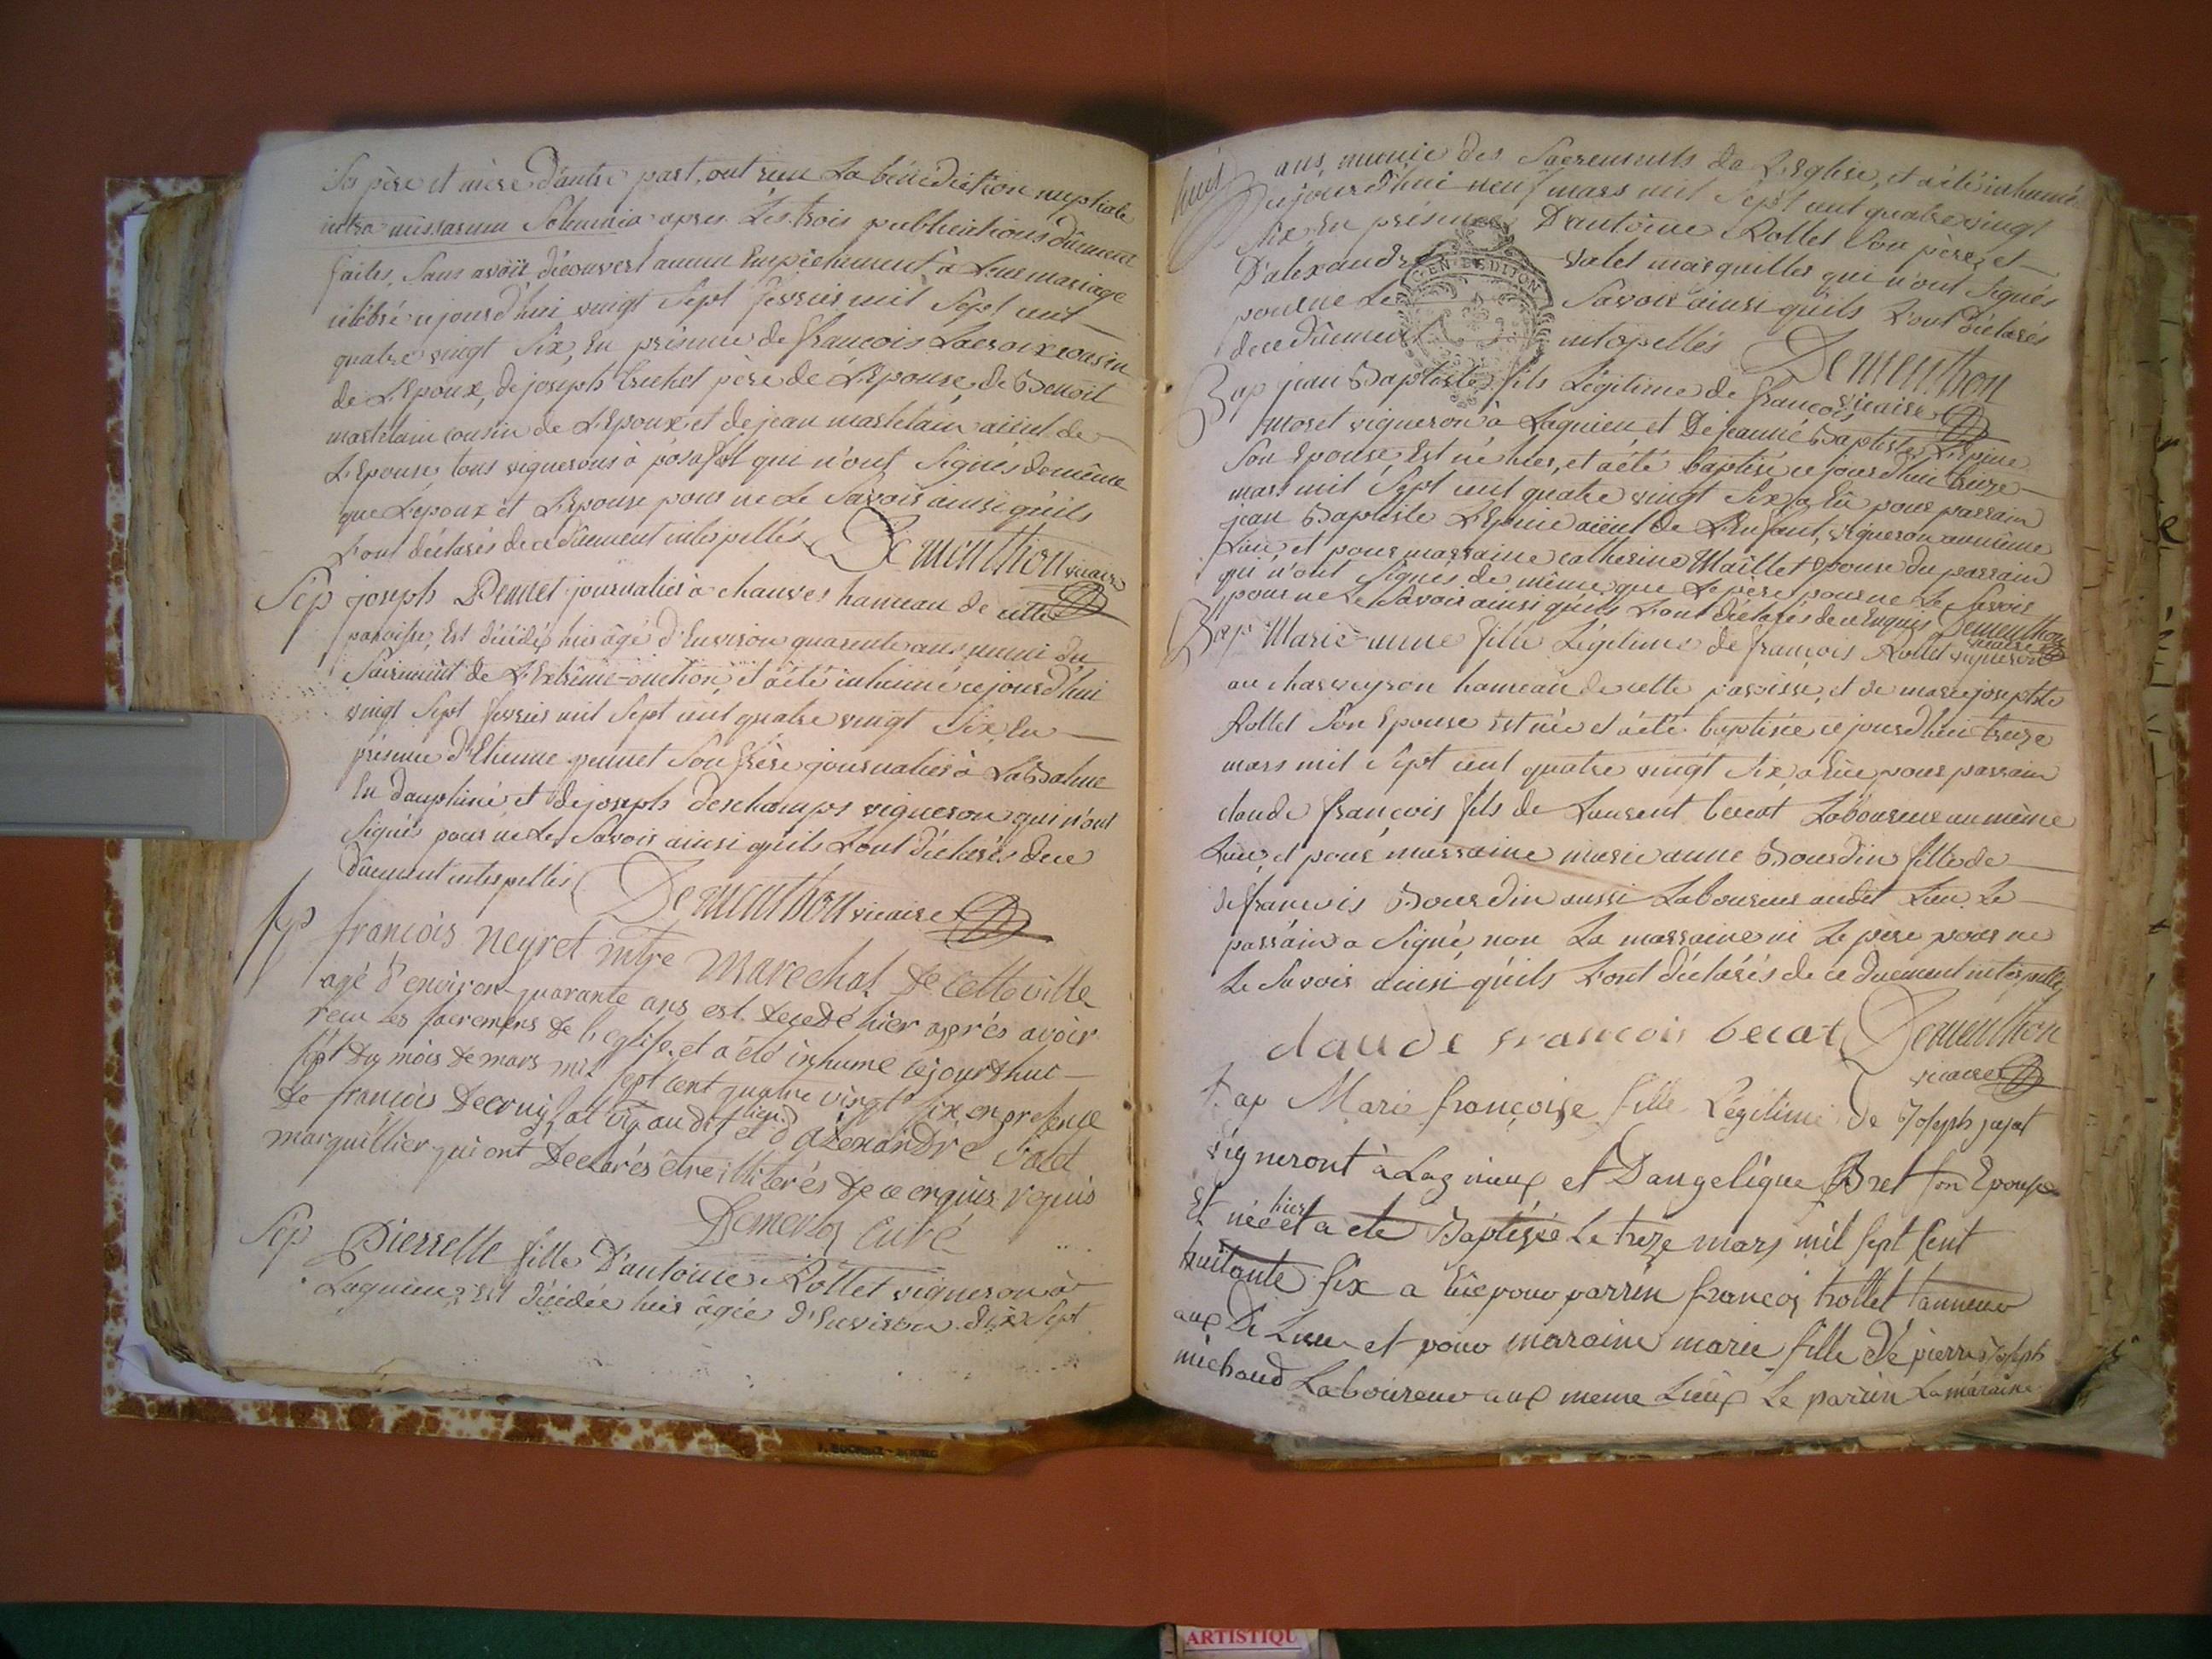 Ses père et mère d'autre part, ont reçu La bénédiction nuptiale
intra missarum Solemnia apres Les trois publications dûment
faites, Sans avoir découvert aucun Empêchement à Leur mariage
célébré cejourd'hui vingt Sept fevrier mil Sept cent
quatre vingt Six, En présence de francois Lacroix cousin
de L'Epoux, de joseph truchet père de L'Epouse, de Benoit
martelain cousin de L'Epoux et de jean martelain aïeul de
L'Epouse, tous vignerons à posafol qui n'ont Signés de même
que L'epoux et L'Epouse pour ne Le Savoir ainsi qu'ils
L'ont déclarés de ce dûement interpellés Dementhon vicaire
Sep joseph Pennet journalier à chauves hameau de cette
paroisse, Est décédé hier âgé d'Environ quarante ans muni du
Sacrement de L'Extrême-onction, et a été inhumé cejourd'hui
vingt Sept fevrier mil Sept cent quatre vingt Six, En
présence d'Etienne pennet Son frère journalier à La Balme
En dauphiné et de joseph deschamps vigneron qui n'ont
Signés pour ne Le Savoir ainsi qu'ils L'ont déclarés de ce
dûement interpellés Dementhon vicaire
sep françois neyret mtre marechal de cette ville
agé d'environ quarante ans est decedé hier après avoir
recu les sacremens de l'eglise et a été inhumé cejourdhui
sept du mois de mars mil sept cent quatre vingt six en presence
de françois audit lieu et d'alexandre valet
marguillier qui ont declarés être illiterés de ce enquis requis
curé
Sep Pierrette fille D'antoine Rollet vigneron à
Lagnieu, Est décédée hier âgée d'Environ dix Sept
huit ans, munie des Sacrements de L'Eglise, et a été inhumée
cejourd'hui neuf mars mil Sept cent quatre vingt
Six En présence D'antoine Rollet Son père, et
D'alexandre valet marguiller qui n'ont Signés
pour ne Le Savoir ainsi qu'ils L'ont déclarés
de ce dûment interpellés Dementhon
GEN. DE DIJON
vicaire
Bap jean Baptiste fils Légitime de francois
moret vigneron à Lagnieu et De jeanne Baptiste L'Epine
Son Epouse, Est né hier, et a été baptisé cejourd'hui treize
mars mil Sept cent quatre vingt Six, a Eû pour parrain
jean Baptiste L'Epine aïeul de L'Enfant, vigneron au même
Lieu, et pour marraine catherine Maillet Epouse du parrain
qui n'ont Signés de même que Le père pour ne Le Savoir
pour ne Le Savoir ainsi qu'ils L'ont déclarés de ce Enquis Dementhon
vicaire
Bap Marie-anne fille Légitime de françois Rollet vigneron
au charveyron hameau de cette paroisse, et de marie josephte
Rollet Son Epouse Est née et a été baptisée cejourd'hui treize
mars mil Sept cent quatre vingt Six, a Eûe pour parrain
claude françois fils de Laurent becat Laboureur au même
Lieu, et pour marraine marie anne Bourdin fille de
de francois Bourdin aussi Laboureur audit Lieu. Le
parrain a Signé, non La marraine ni Le père pour ne
Le Savoir ainsi qu'ils L'ont déclarés de ce duement interpellés
claude francois becat Dementhon
vicaire
Bap Marie françoise fille Légitime De Joseph jujat
vigneront à Lagnieux et Dangelique Bret son Epouse
Et née hier et a ete Baptisée Le treze mars mil sept Cent
huitante six a Eüe pour parrin françois trollet tanneur
aux Di Lieu et pour maraine marie fille De pierre Joseph
michaud Laboureur aux meme Lieux Le parrin La maraine
ARTISTIQU